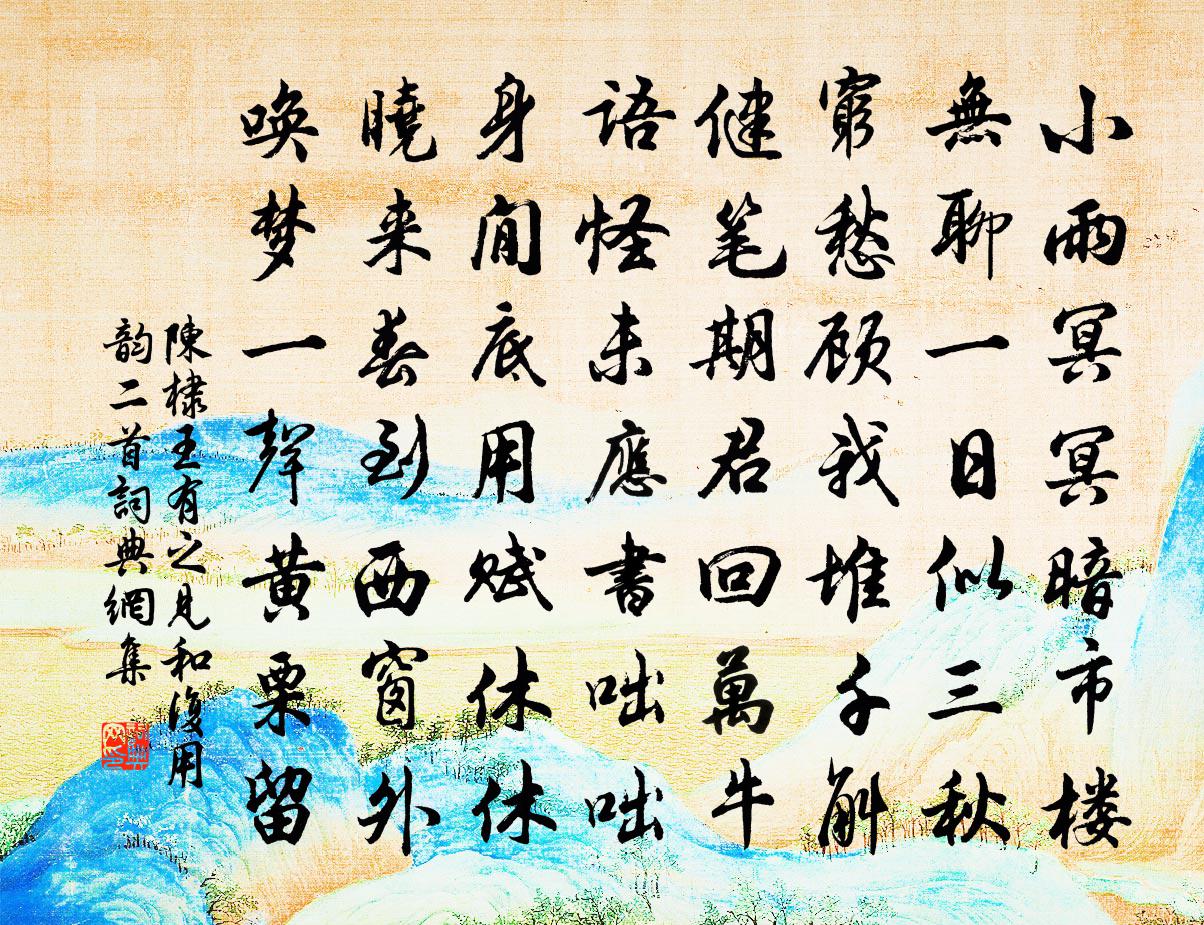 小雨冥冥暗市楼
無聊一日似三秋
窮愁顾我堆千斛
健笔期君回萬牛
语怪未應書咄咄
身閒底用赋休休
曉来春到西窗外
唤梦一聲黄栗留
陳棣王有之見和復用
韵二首詞典網集